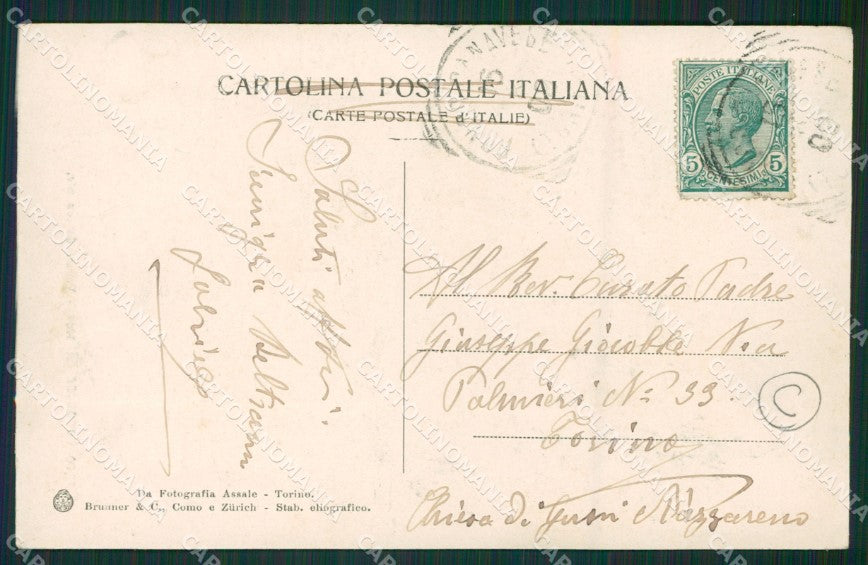 CARTOLINA POSTALE ITALIANA
(CARTE POSTALE d'ITALIE)
POSTE ITALIANE
5 5
CENTESIMI
Saluti
Famiglia Beltramo
Al Rev. Curato Padre
Giuseppe Giacobbe Via
Palmieri N. 33
Torino
Chiesa di Gesù Nazzareno
Da Fotografia Assale - Torino.
Brunner & C., Como e Zürich - Stab. eliografico.
CARTOLINOMANIA